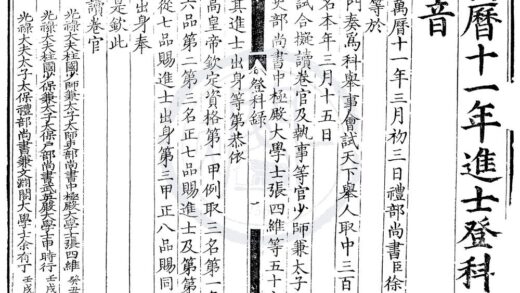 曆十一年進士登科
音
萬曆十一年三月初三日禮部尚書臣徐
等於
門奏爲科舉事會試天下舉人取中三百
名本年三月十五日
試合擬讀卷官及執事等官少師兼太子
吏部尚書中極殿大學士張四維等五十
其進士出身等第恭依
高皇帝欽定資格第一甲例取三名第一
六品第二第三名正七品賜進士及第第
從七品賜進士出身第三甲正八品賜同
出身奉
是欽此
讀卷官
光祿大夫柱國少師兼太子太師吏部尚書中極殿大學士張四維
光祿大夫柱國少傅兼太子太保戶部尚書武英殿大學士申時行 壬戌
光祿大夫太子太保禮部尚書兼文淵閣大學士余有丁 壬戌
登科錄
一